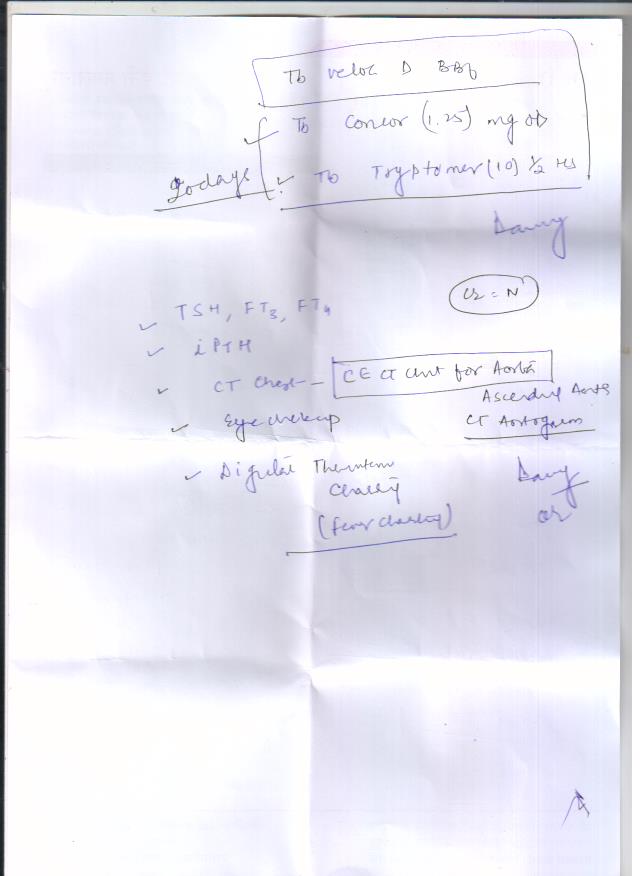 Tb Veloz D BBf
Tb Concor (1.25) mg OD
20 days
Tb Tryptomer (10) 1/2 HS
Cr = N
TSH, FT3, FT4
iPTH
CT Chest - CECT Chest for Aorta
Ascending Aorta
Eye checkup
CT Aortogram
Digital Thermometer
Charting
(fever charting)